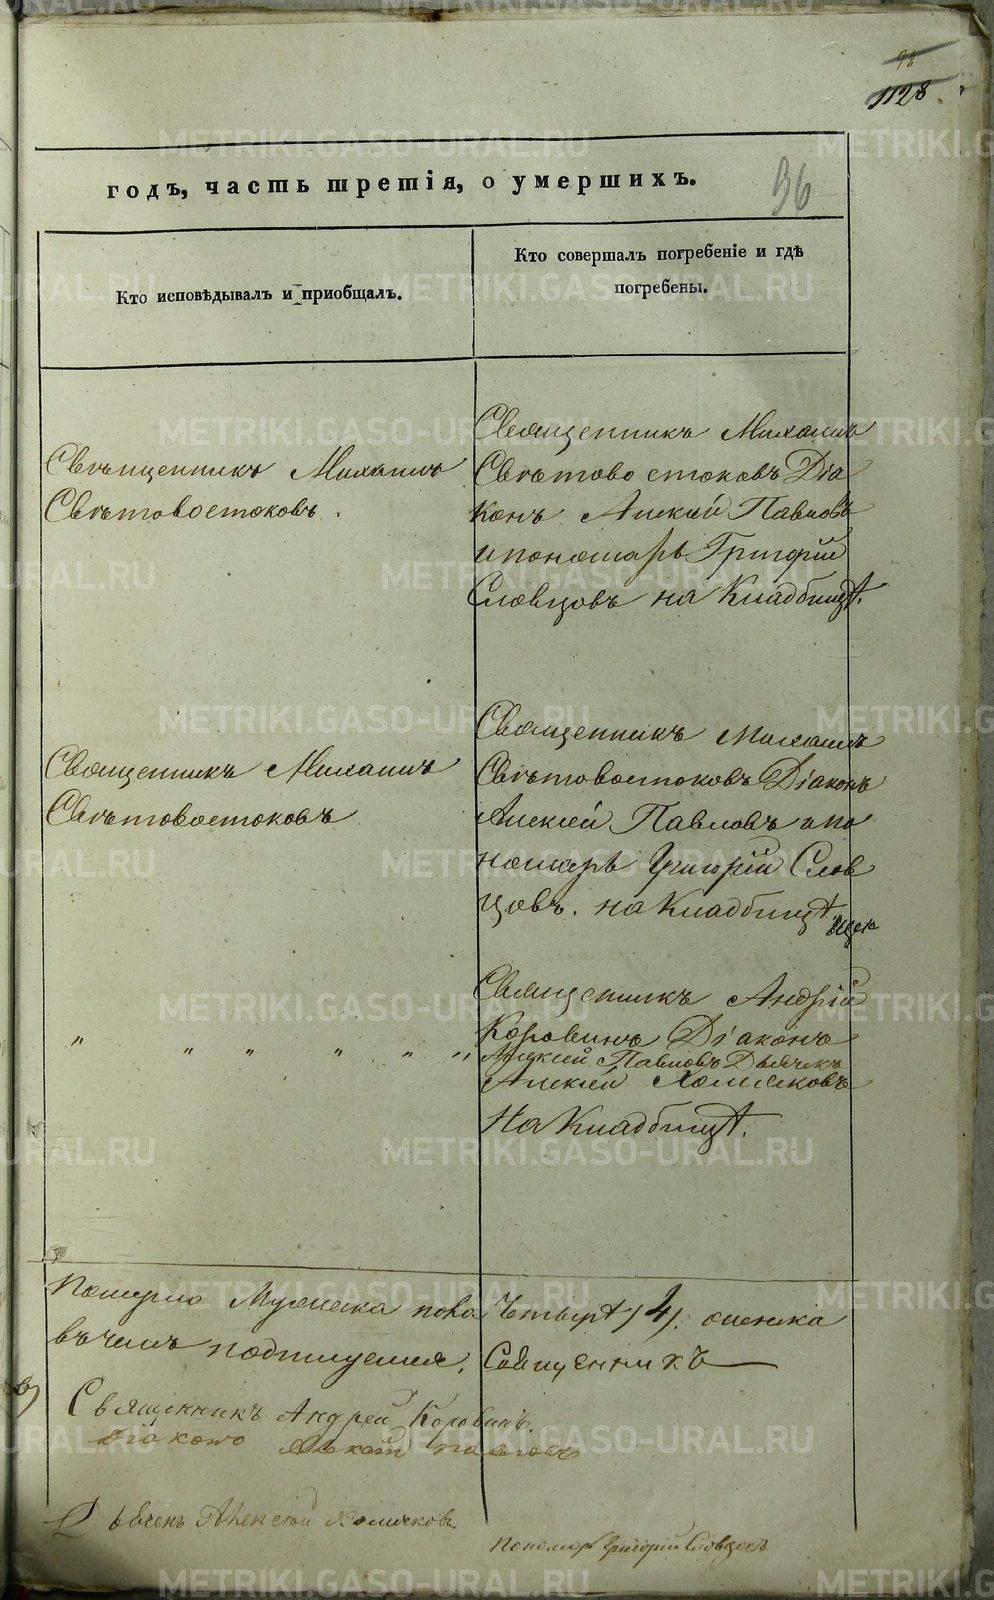 98
1128.
годъ, часть третія, о умершихъ.
96
Кто исповѣдывалъ и пріобщалъ.
Кто совершалъ погребеніе и гдѣ
погребены.
Священникъ Михаилъ
Свѣтовостоковъ.
Священникъ Михаилъ
Свѣтовостоковъ Діа
конъ Алексій Павловъ
и пономарь Григорій
Словцовъ на Кладбищѣ.
Священникъ Михаилъ
Свѣтовостоковъ
Священникъ Михаилъ
Свѣтовостоковъ Діаконъ
Алексій Павловъ и по
номарь Григорій Слов
цовъ. на Кладбищѣ
" " " " " "
Священникъ Андрій
Коровинъ Діаконъ
Алексій Павловъ Дьячекъ
Алексій Холмяковъ
На Кладбищѣ.
Померло Мужеска пола Четыре /4/.
въ чемъ подпишемся. Священникъ
Священникъ Андрей Коровинъ.
Діаконъ Алексѣй Павловъ
Дьячекъ Алексѣй Холмяковъ.
Пономарь Григорій Словцовъ
METRIKI.GASO-URAL.RU